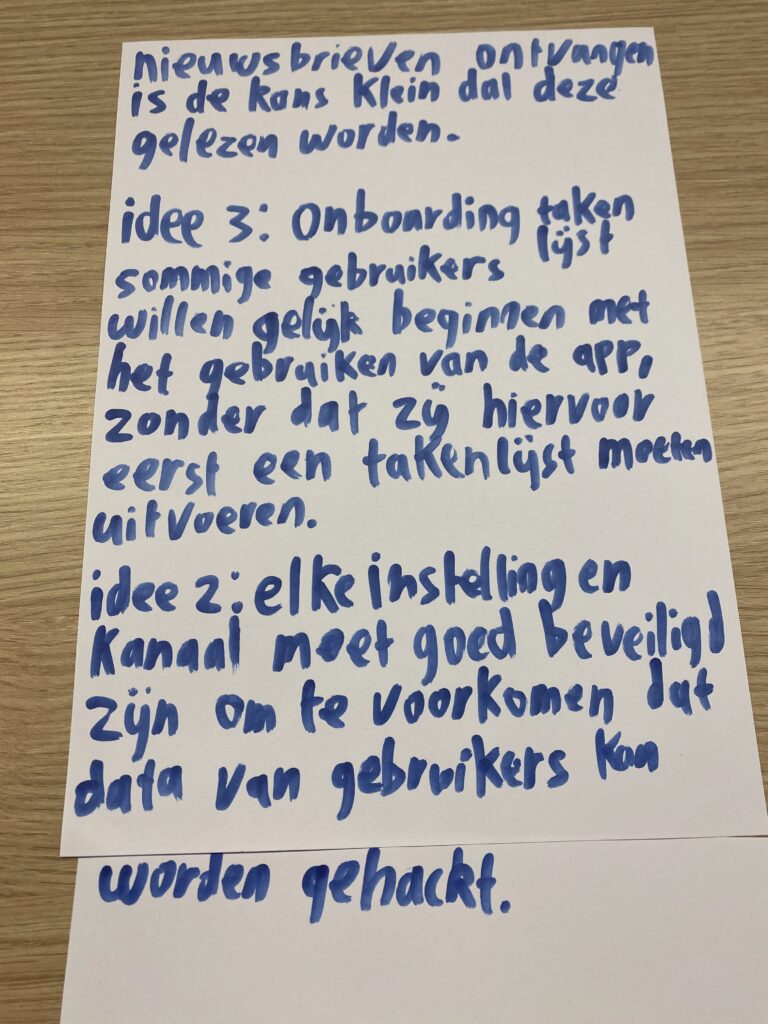 nieuwsbrieven ontvangen
is de kans klein dat deze
gelezen worden.
idee 3: Onboarding taken
lijst
sommige gebruikers
willen gelijk beginnen met
het gebruiken van de app,
zonder dat zij hiervoor
eerst een takenlijst moeten
uitvoeren.
idee 2: elke instelling en
kanaal moet goed beveiligd
zijn om te voorkomen dat
data van gebruikers kan
worden gehackt.